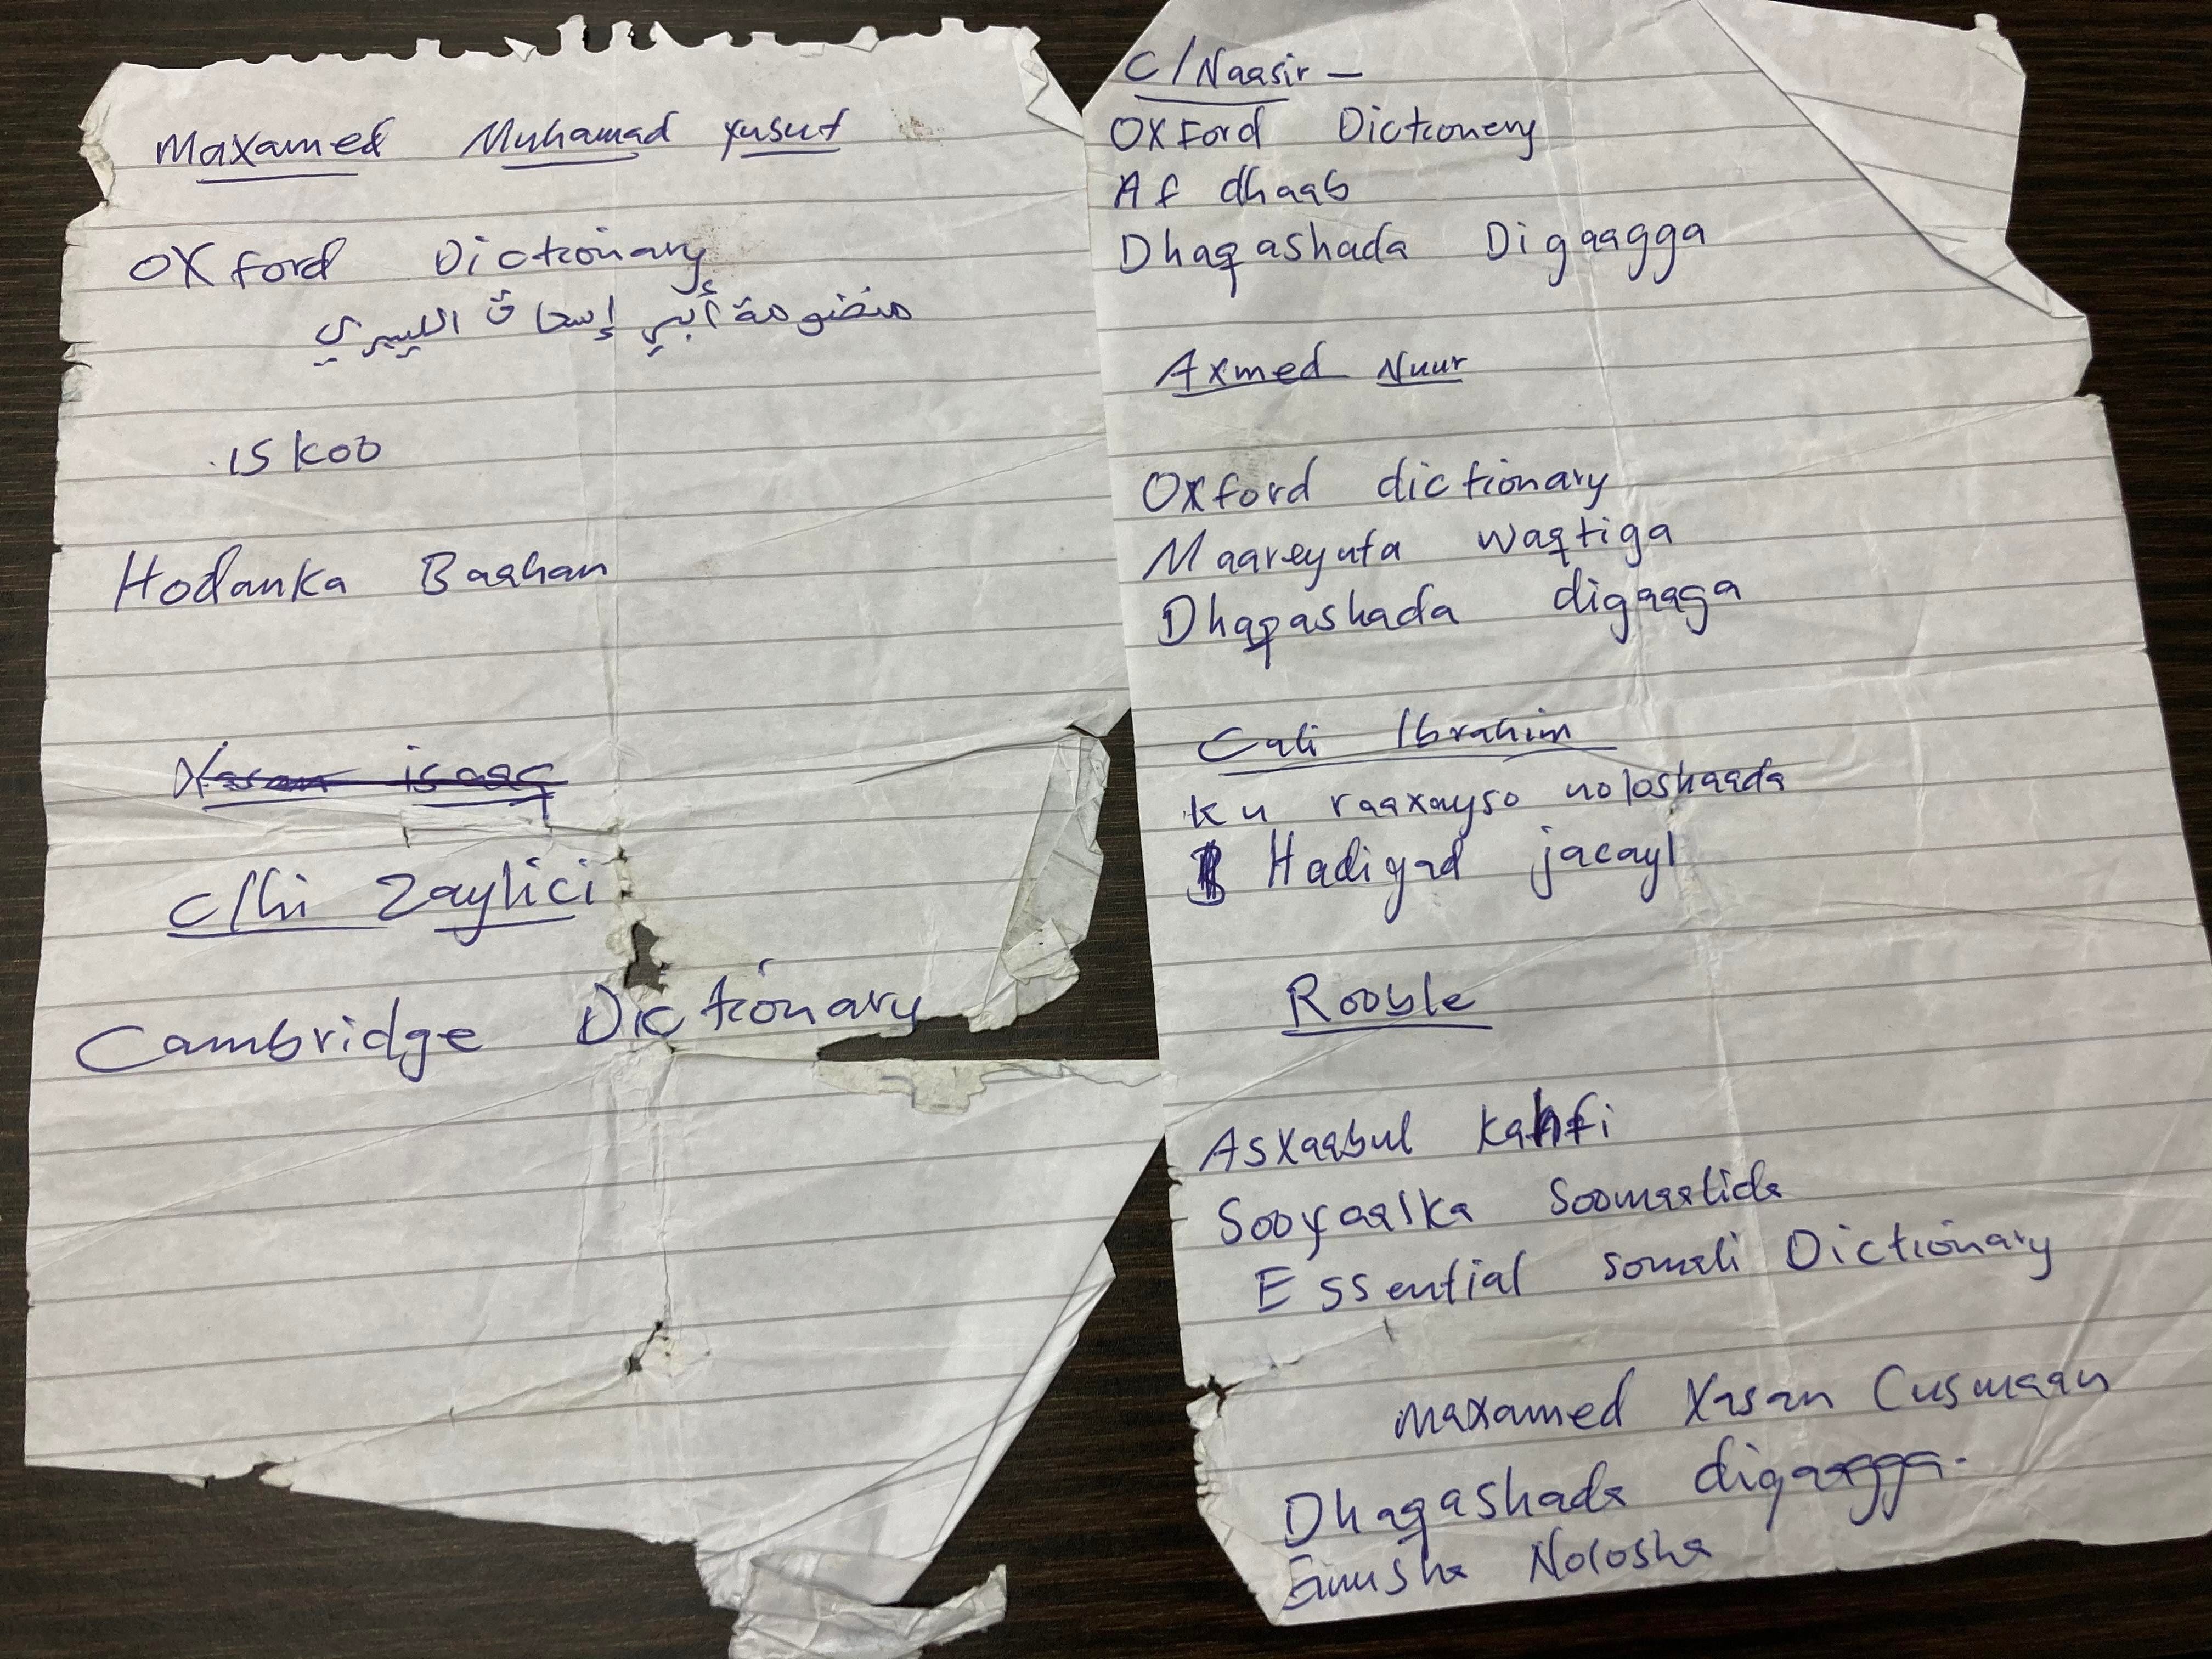 Maxamed Muhamad Yusuf
OXford Dictionary
منضومة أبي إسحاق الليبيري
iskoo
Hodanka Baahan
Xasan isaaq
C/hi Zaylici
Cambridge Dictionary
C/Naasir –
OXFord Dictionery
Af dhaab
Dhaqashada Digaagga
Axmed Nuur
Oxford dictionary
Maareynta waqtiga
Dhaqashada digaaga
Cali Ibrahim
Ku raaxayso noloshaada
Hadiyad jacayl
Rooble
Asxaabul Kahfi
Sooyaalka Soomaalida
Essential somali Dictionary
Maxamed Xasan Cusmaan
Dhaqashada digaagga.
Furusha Nolosha